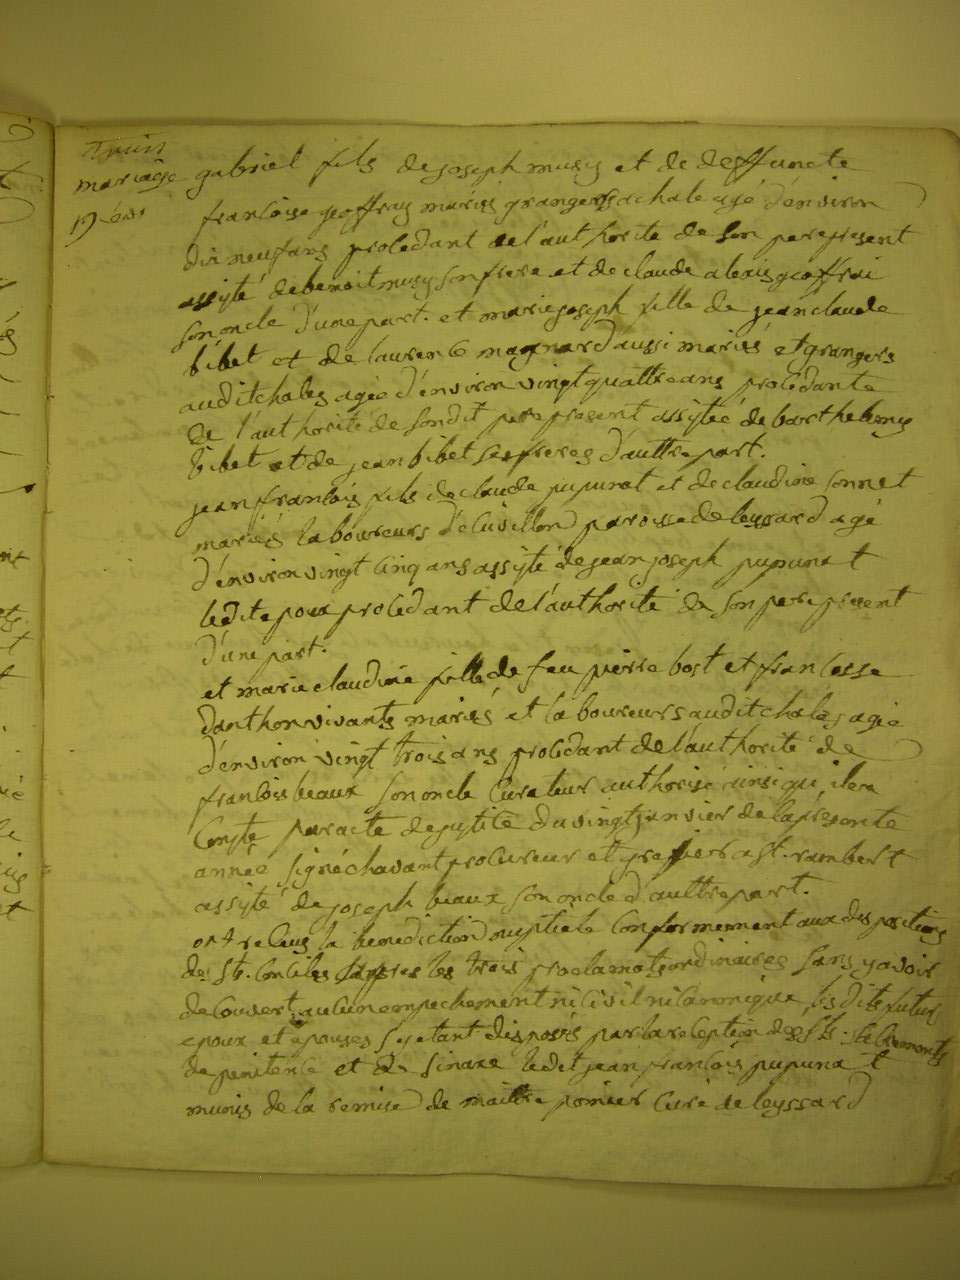 mariage
gabriel fils de joseph musy et de deffuncte
francoise geoffray mariés grangers a chale agé d'environ
dix neuf ans procedant de l'authorité de son pere present
assisté de benoit musy son frere et de claude alexis geoffrai
son oncle d'une part. et marie joseph fille de jean claude
bibet et de laurence magnard aussi mariés et grangers
audit chales agée d'environ vingt quattre ans procedante
de l'authorité de son dit pere present assistée de barthelemy
bibet et de jean bibet ses freres d'auttre part.
jean francois fils de claude pupunat et de claudine sonnet
mariés laboureurs d' paroisse de leyssard agé
d'environ vingt cinq ans assisté de jean joseph pupunat
ledit epoux procedant de l'authorité de son pere present
d'une part.
et marie claudine fille de feu pierre bost et francoise
danthon vivants mariés et laboureurs audit chales agée
d'environ vingt trois ans procedant de l'authorité de
francois beaux son oncle curateur authorisé ainsi qu'il en
conste par acte de justice du vingt janvier de la presente
année signé chavant procureur et greffier a st. rambert
assisté de joseph beaux son oncle d'aultre part.
ont receus la benediction nuptiale conformement aux dispositions
des sts. conciles apres les trois proclamats ordinaires sans y avoir
decouvert aucun empechement ni civil ni canonique, lesdits futurs
epoux et epouses s'etant disposés par la reception des sts. sacrements
de penitence et de sinaxe ledit jean francois pupunat
munis de la remise de maitre pomier curé de leyssard